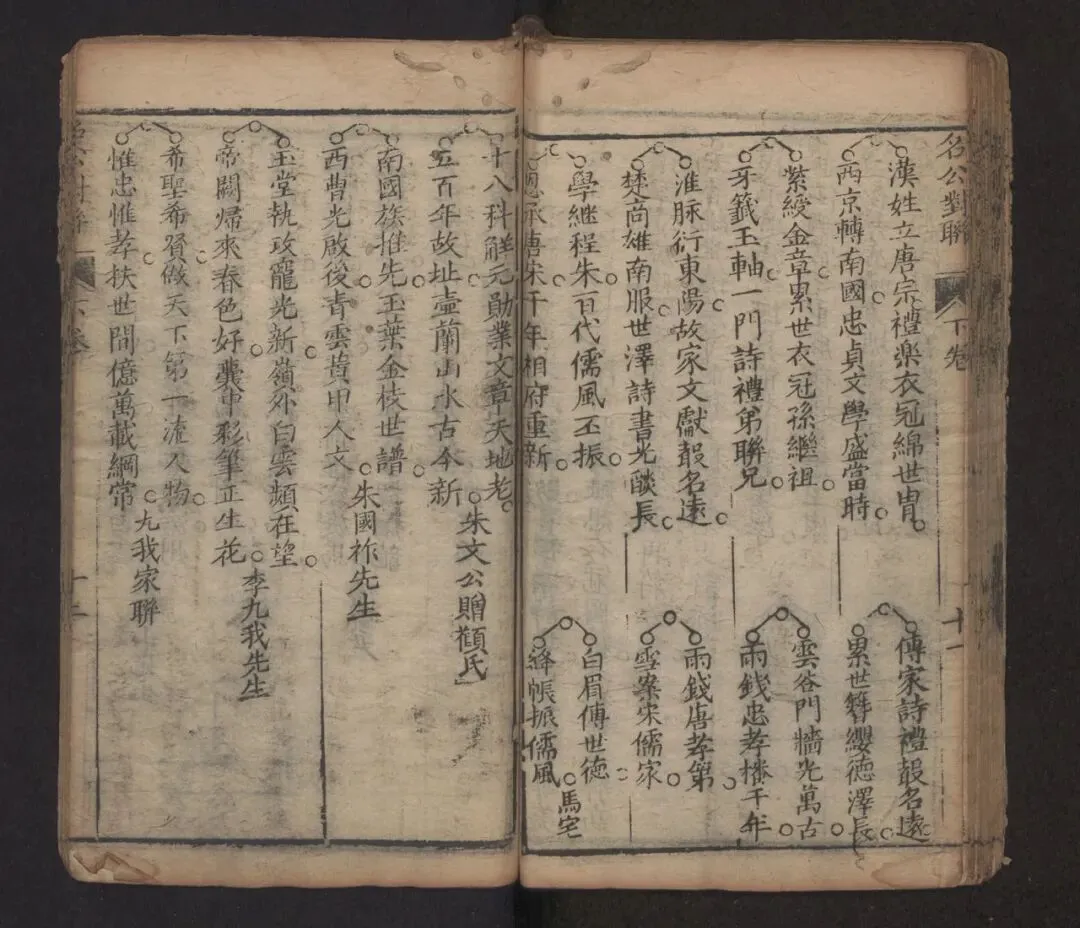 名公對聯
下卷
十一
漢姓立唐宗禮樂衣冠綿世胄
西京轉南國忠貞文學盛當時
紫綬金章累世衣冠孫繼祖
牙籤玉軸一門詩禮弟聯兄
淮脉衍東陽故家文獻聲名遠
楚商雄南服世澤詩書光燄長
學繼程朱百代儒風丕振
恩承唐宋千年相府重新
傳家詩禮聲名遠
累世簪纓德澤長
雲谷門牆光萬古
兩錢忠孝播千年
兩錢唐孝第
雪案宋儒家
白眉傳世德
絳帳振儒風
馬宅
十八科解元勛業文章天地老
五百年故址壺蘭山水古今新
朱文公贈顏氏
南國族推先玉葉金枝世譜
西曹光啟後青雲黄甲人文
朱國祚先生
玉堂執政寵光新嶺外白雲頻在望
帝闕歸來春色好囊中彩筆正生花
李九我先生
希聖希賢做天下第一流人物
惟忠惟孝扶世間億萬載綱常
九我家聯
下卷